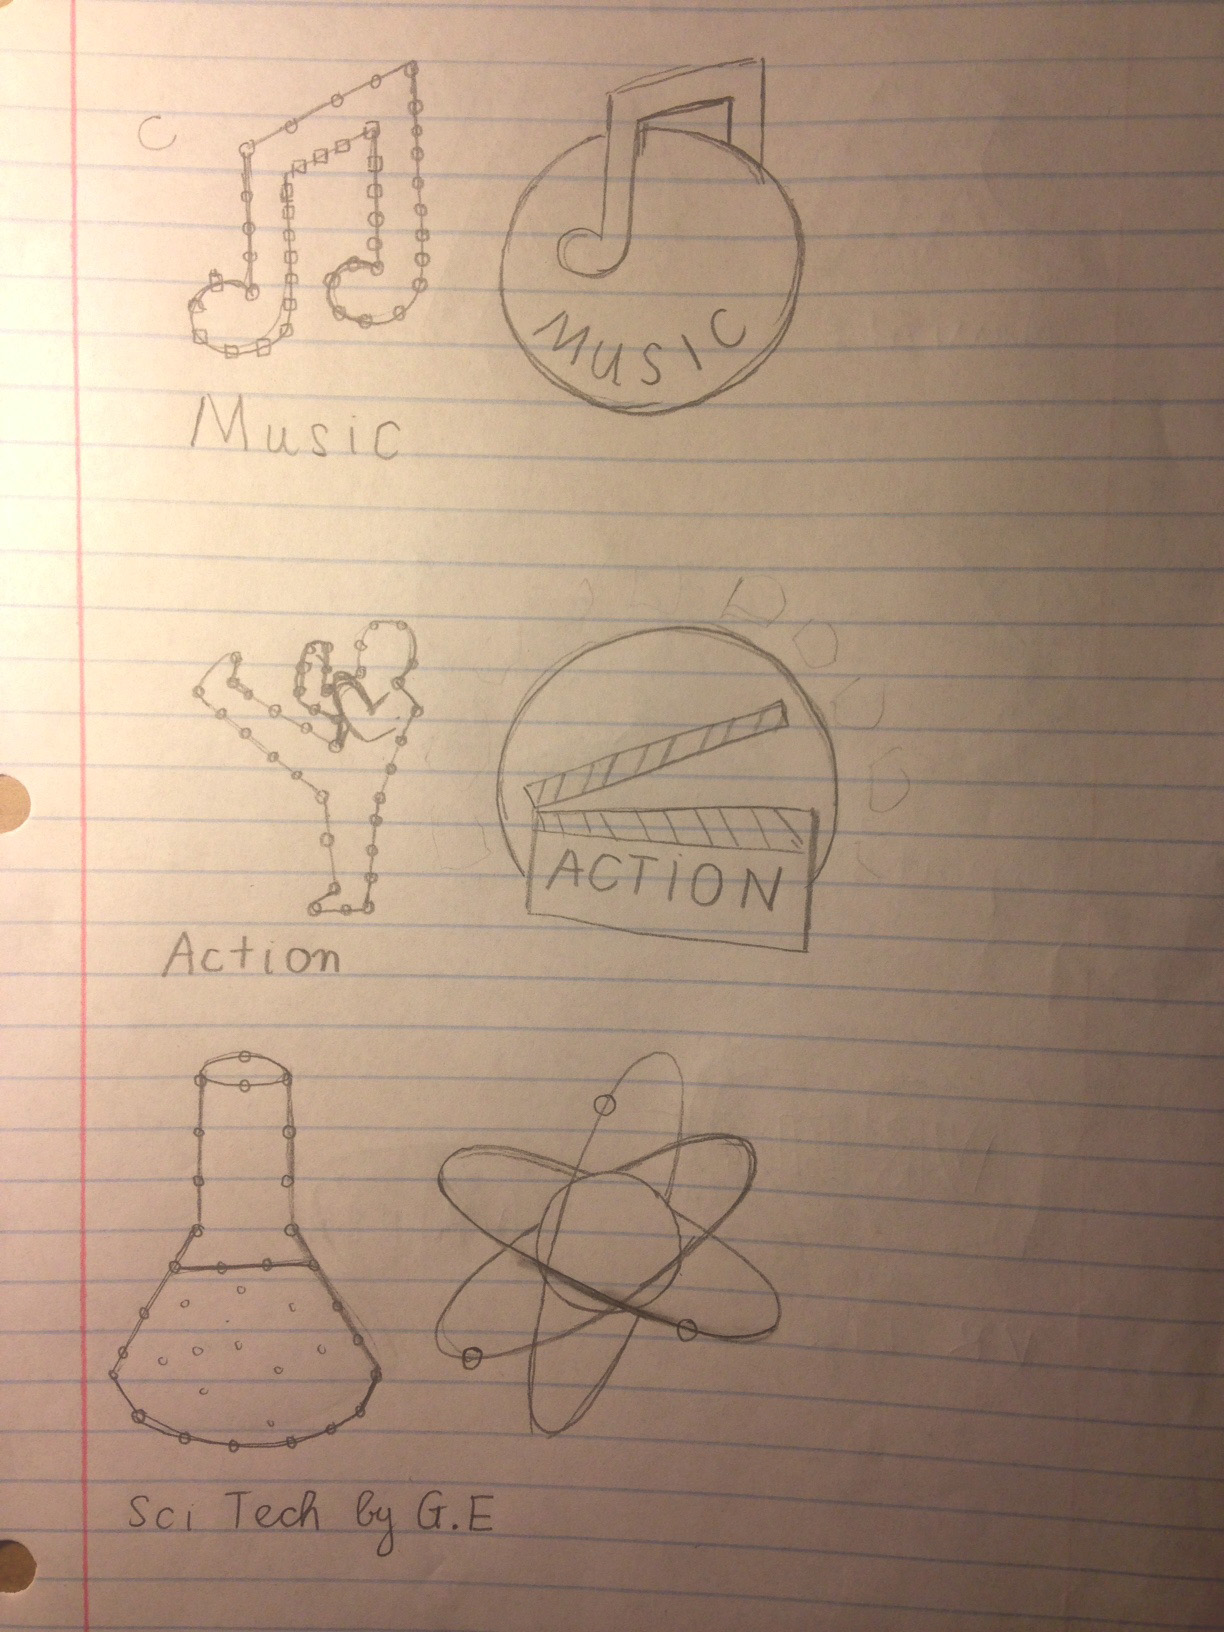 C
MUSIC
Music
ACTiON
Action
Sci Tech by G.E